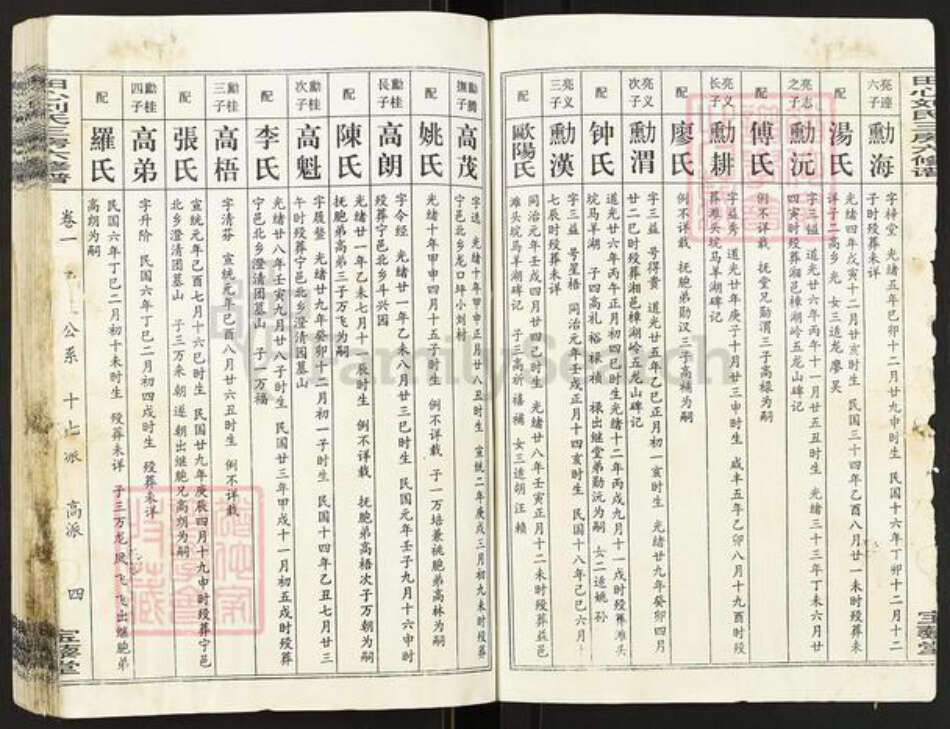 田心刘氏三房六修谱
亮達六子
勳海
字梓堂 光緒五年巳卯十二月廿九寅时生 民国十六年丁卯十二月十二
子时殁葬未详
配
湯氏
光緒四年戊寅十二月廿亥时生 民国三十四年乙酉八月廿一未时殁葬未
详子二高乡 光吉 女三适龙廖吴
亮志之子
勳沅
字三镒 道光廿六年丙午十一月廿五丑时生 光緒三十三年丁未六月廿
四寅时殁葬湘邑樟湖岭五龙山碑记
配
傅氏
例不详载 抚堂兄勋渭三子高禄为嗣
亮义长子
勳耕
字益秀 道光廿年庚子十月廿三申时生 咸丰五年乙卯八月十九酉时殁
葬滩头垸马羊湖碑记
配
廖氏
例不详载 抚胞弟勋汉三子高補为嗣
亮义次子
勳渭
字三益 号得贵 道光廿五年乙巳正月初一亥时生 光緒廿九年癸卯四月
廿二巳时殁葬湘邑樟湖岭五龙山碑记
配
钟氏
道光廿六年丙午正月初四巳时生光緒十二年丙戌九月十一戌时殁葬滩头
垸马羊湖 子四高礼 裕 禄 祯 禄出继堂弟勋沅为嗣 女二适姚 孙
亮义三子
勳漢
字三益 号星梧 同治元年壬戌正月十四亥时生 民国十八年己巳六月十
七辰时殁葬未详
配
歐陽氏
同治元年壬戌四月廿四巳时生 光緒廿八年壬寅正月十二未时殁葬益邑
滩头垸马羊湖碑记 子三高祈 禧 補 女三适胡 汪 赖
勳爵撫子
高茂
字送 光緒十年甲申正月廿八丑时生 宣統二年庚戌三月初九未时殁葬
宁邑北乡龙口坪小刘村
配
姚氏
光緒十年甲申四月十五子时生 例不详载 子一万培兼祧胞弟高林为嗣
勳桂長子
高朗
字令經 光緒廿一年乙未八月廿三巳时生 民国元年壬子九月十六申时
殁葬宁邑北乡斗兴园
配
陳氏
光緒廿一年乙未七月十一辰时生 例不详载 抚胞弟高梧次子万朝为嗣
抚胞弟高弟三子万飞为嗣
勳桂次子
高魁
字履鳌 光緒廿九年癸卯十二月初一子时生 民国十四年乙丑七月廿三
午时殁葬宁邑北乡澄清团墓山
配
李氏
光緒廿八年壬寅九月廿八子时生 民国廿三年甲戌十一月初五戌时殁葬
宁邑北乡澄清团墓山 子一万福
勳桂三子
高梧
字清芬 宣統元年巳酉八月廿六丑时生 例不详载
配
張氏
宣統元年己酉七月十六巳时生 民国廿九年庚辰四月十九申时殁葬宁邑
北乡澄清团墓山 子三万來 朝 遂 朝出继胞兄高朗为嗣
勳桂四子
高弟
字升阶 民国六年丁巳二月初四戌时生 殁葬未详
配
羅氏
民国六年丁巳二月初十未时生 殁葬未详 子三万龙 虎 飞 飞出继胞弟
高朗为嗣
田心刘氏三房六修谱
卷一 公系 十七派 高派 四
FamilySearch